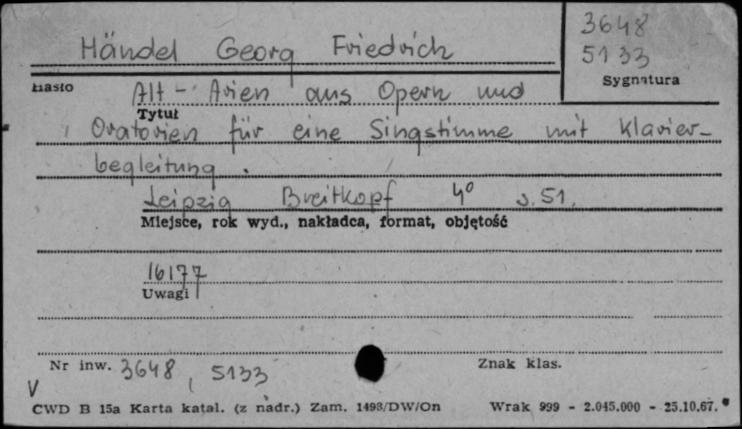 3648
Händel Georg Friedrich
5133
Sygnatura
Hasło
Alt - Arien aus Opern und
Tytuł
Oratorien für eine Singstimme mit Klavier-
begleitung.
Leipzig Breitkopf 4º s. 51.
Miejsce, rok wyd., nakładca, format, objętość
16177
Uwagi
Nr inw. 3648, 5133
Znak klas.
V
CWD B 15a Karta katal. (z nadr.) Zam. 1493/DW/On Wrak 999 - 2.045.000 - 25.10.67.